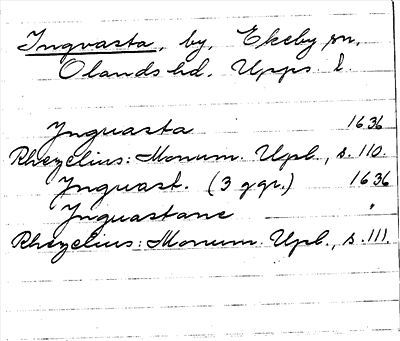 Ingvasta, by, Ekeby sn,
Olands hd. Upps. l.
Ynguasta 1636
Rhezelius: Monum. Upl., s. 110.
Ynguast. (3 ggr.) 1636
Ynguastane — "
Rhezelius: Monum. Upl., s. 111.